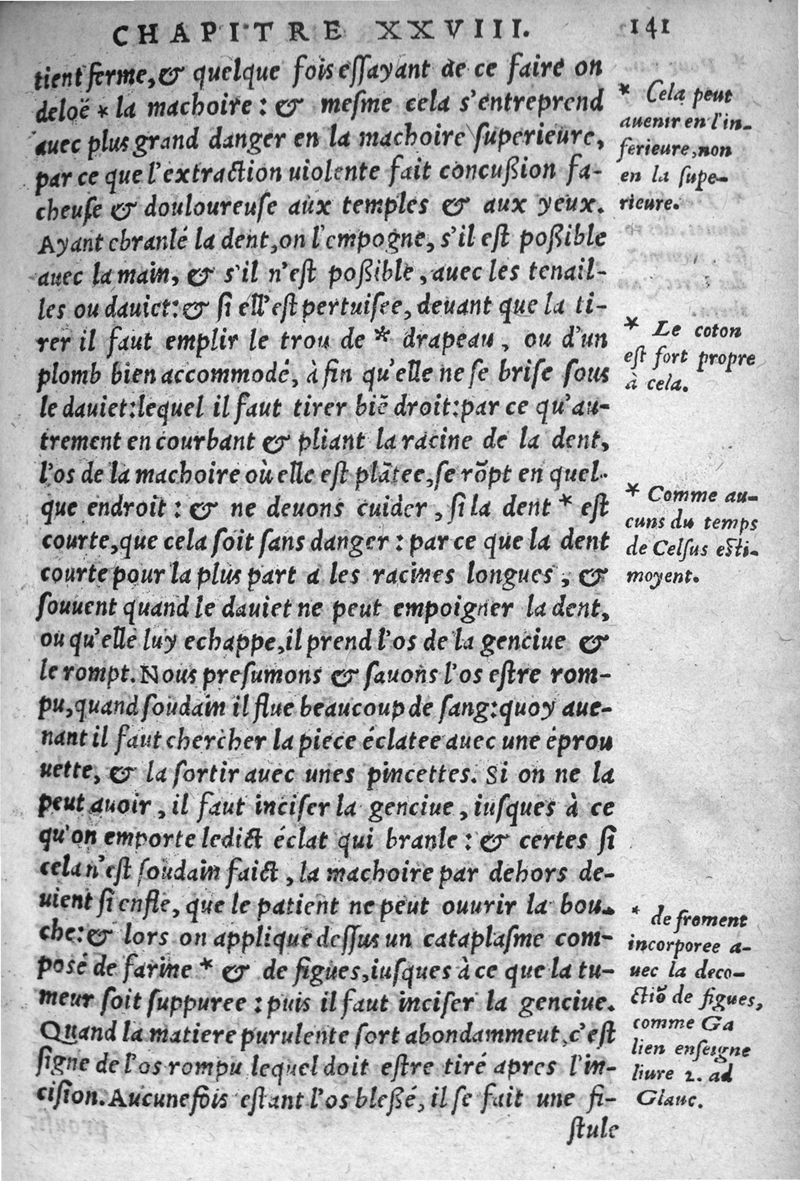 CHAPITRE XXVIII. 141
tient ferme, & quelque fois eſſayant de ce faire on
deloë * la machoire : & meſme cela s'entreprend
auec plus grand danger en la machoire ſuperieure,
par ce que l'extraction uiolente fait concußion fa-
cheuſe & douloureuſe aux temples & aux yeux.
Ayant ebranlé la dent, on l'empogne, s'il eſt poßible
auec la main, & s'il n'eſt poßible, auec les tenail-
les ou dauiet: & ſi ell'eſt pertuiſee, deuant que la ti-
rer il faut emplir le trou de * drapeau, ou d'un
plomb bien accommodé, à fin qu'elle ne ſe briſe ſous
le dauiet: lequel il faut tirer biē droit: par ce qu'au-
trement en courbant & pliant la racine de la dent,
l'os de la machoire où elle eſt plātee, ſe rōpt en quel-
que endroit : & ne deuons cuider, ſi la dent * eſt
courte, que cela ſoit ſans danger : par ce que la dent
courte pour la plus part a les racines longues, &
ſouuent quand le dauiet ne peut empoigner la dent,
ou qu'elle luy echappe, il prend l'os de la genciue &
le rompt. Nous preſumons & ſauons l'os eſtre rom-
pu, quand ſoudain il flue beaucoup de ſang: quoy aue-
nant il faut chercher la piece éclatee auec une éprou
uette, & la ſortir auec unes pincettes. Si on ne la
peut auoir, il faut inciſer la genciue, iuſques à ce
qu'on emporte ledict éclat qui branle : & certes ſi
cela n'eſt ſoudain faict, la machoire par dehors de-
uient ſi enfle, que le patient ne peut ouurir la bou-
che: & lors on applique deſſus un cataplaſme com-
poſé de farine * & de figues, iuſques à ce que la tu-
meur ſoit ſuppuree : puis il faut inciſer la genciue.
Quand la matiere purulente ſort abondammeut, c'eſt
ſigne de l'os rompu lequel doit eſtre tiré apres l'in-
ciſion. Aucunefois eſtant l'os bleßé, il ſe fait une fi-
ſtule
* Cela peut
auenir en l'in-
ferieure, non
en la ſupe-
rieure.
* Le coton
eſt fort propre
à cela.
* Comme au-
cuns du temps
de Celſus eſti-
moyent.
* de froment
incorporee a-
uec la deco-
ctiō de figues,
comme Ga
lien enſeigne
liure 2. ad
Glauc.